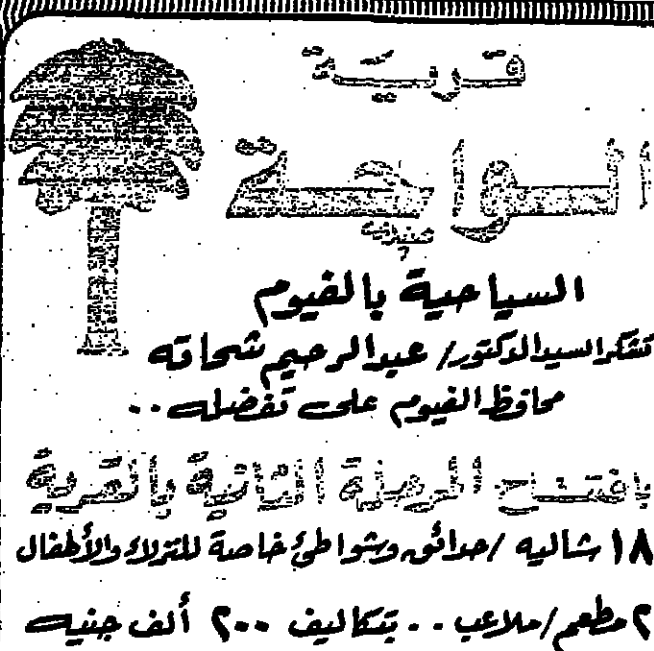 قرية
الواحة
السياحية بالفيوم
تشكر السيد الدكتور/ عبدالرحيم شحاته
محافظ الفيوم على تفضله ..
بافتتاح المرحلة الثانية بالقرية
١٨ شاليه /حدائق وشواطئ خاصة للنزلاء والأطفال
٢ مطعم/ملاعب .. بتكاليف ٢٠٠ ألف جنيه